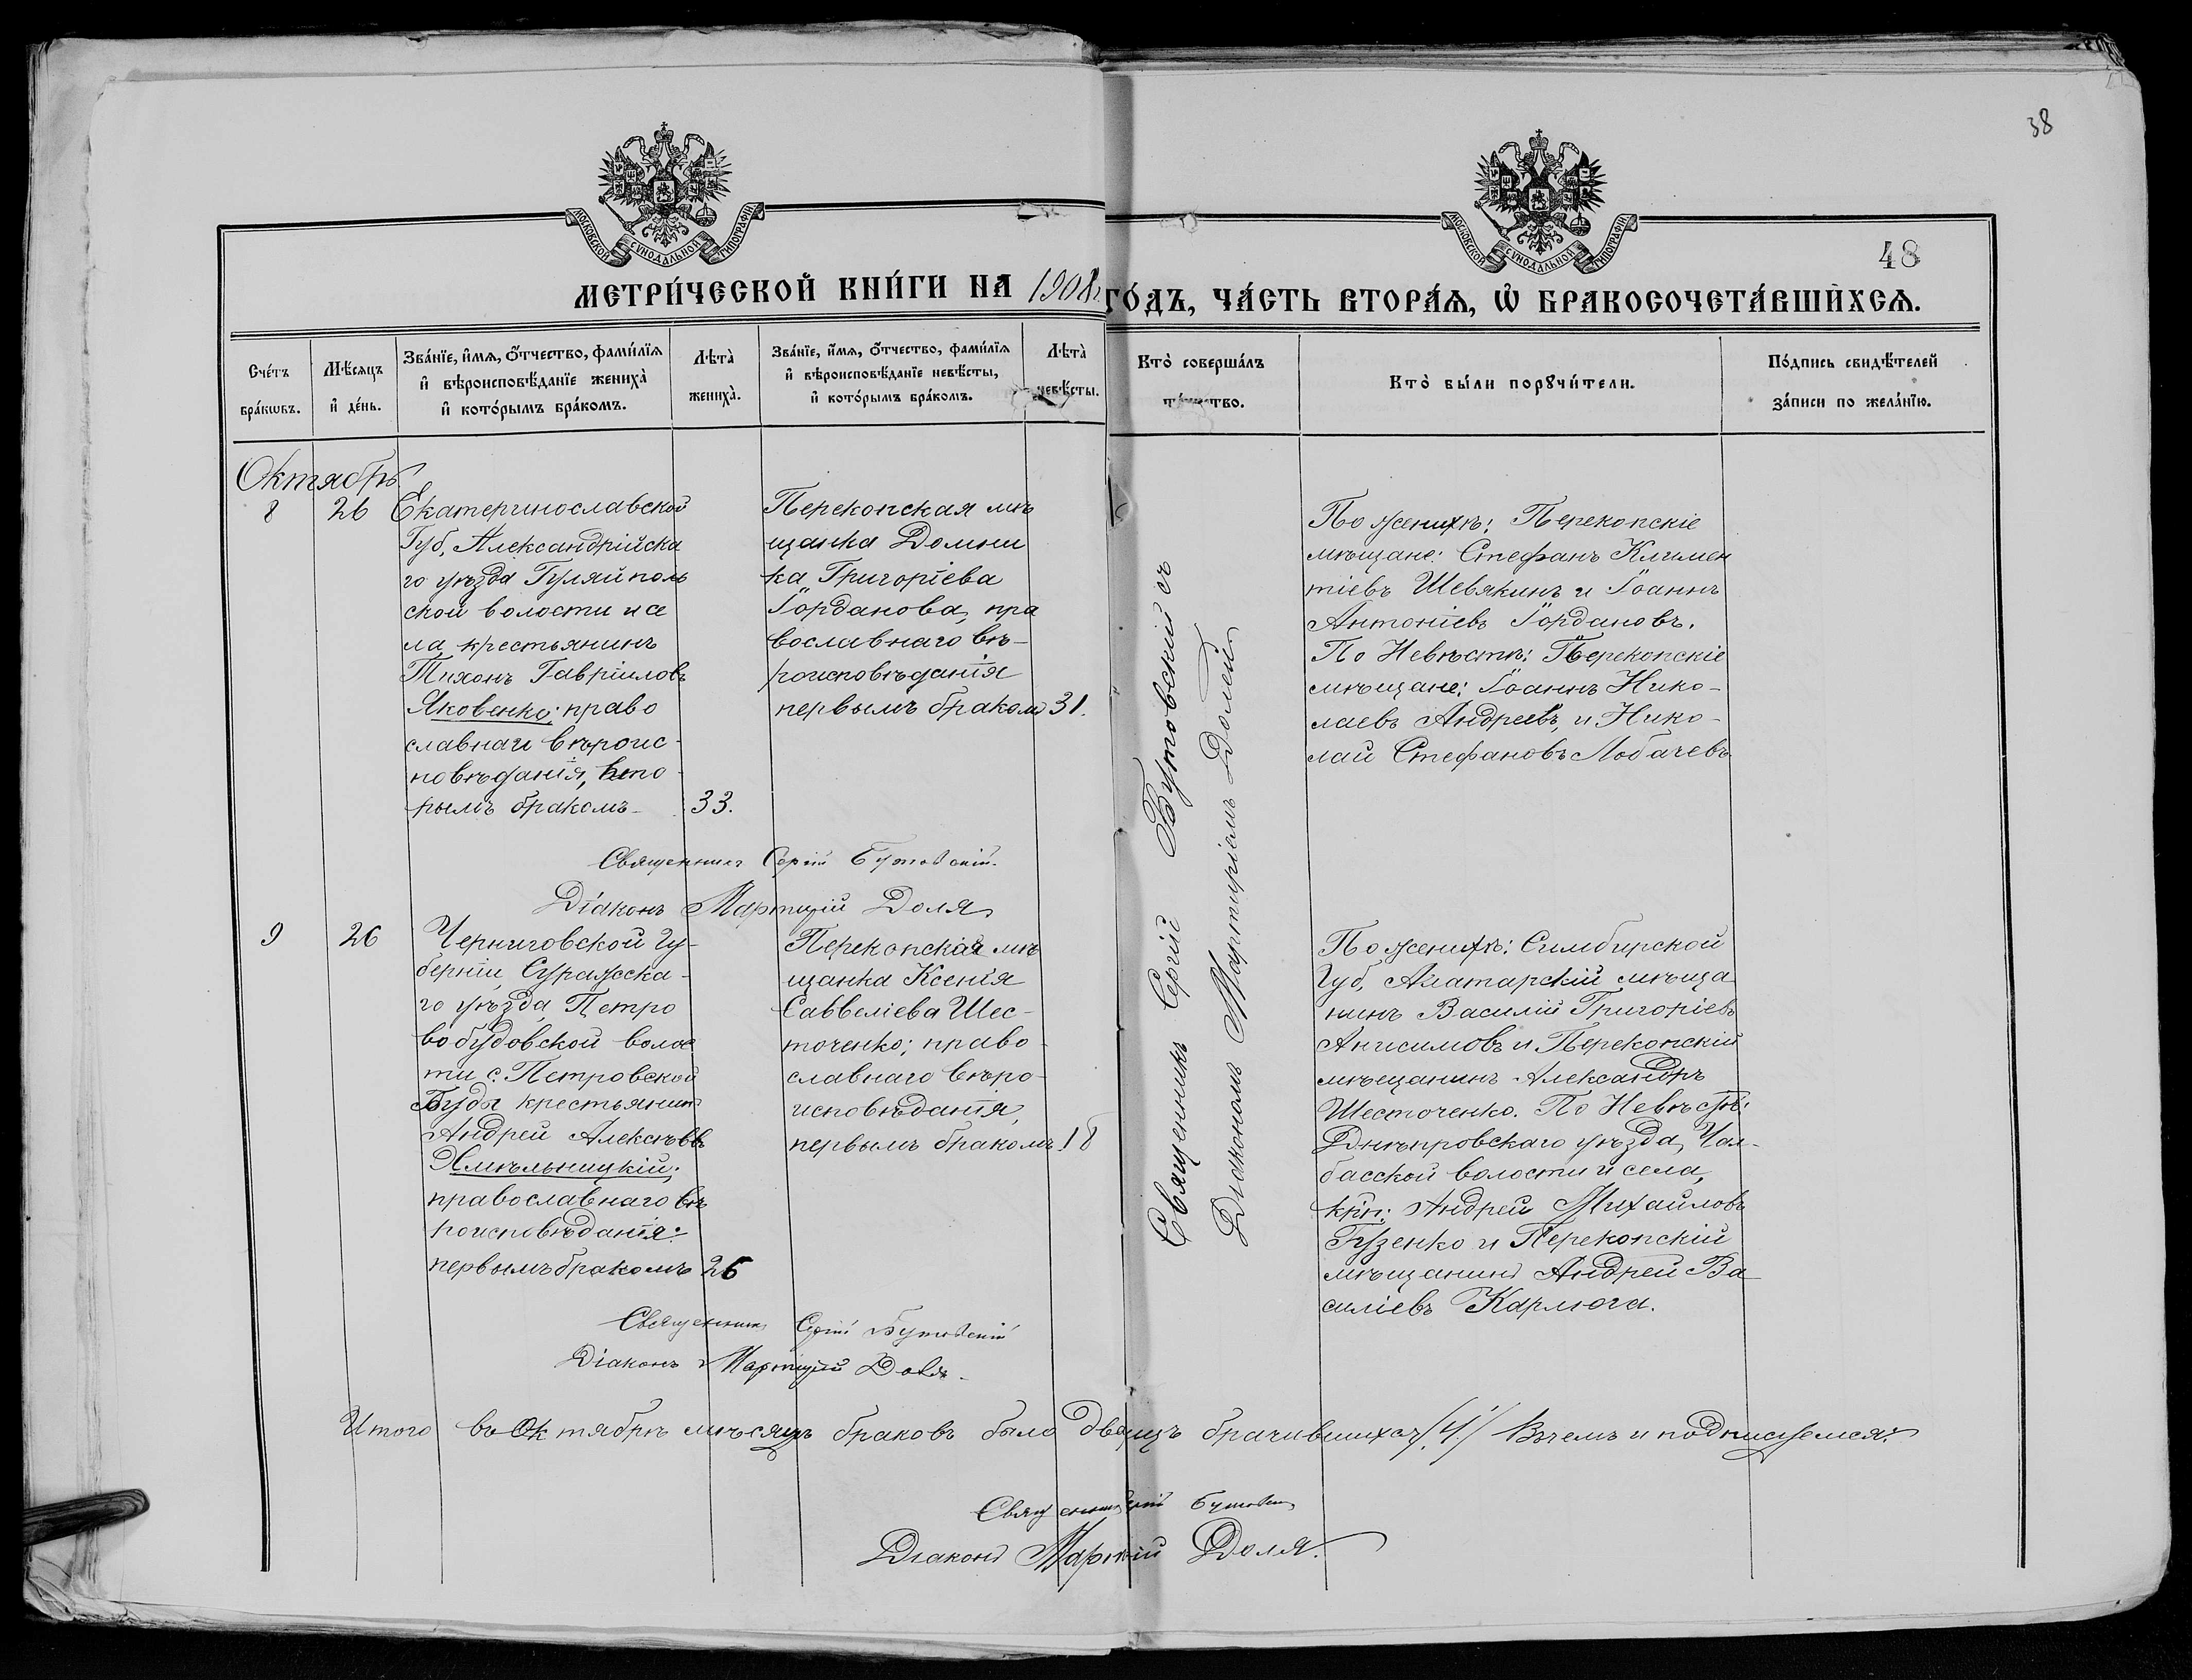 38
МОСКОВСКОЙ СѴНОДАЛЬНОЙ ТИПОГРАФІИ
МОСКОВСКОЙ СѴНОДАЛЬНОЙ ТИПОГРАФІИ
48
МЕТРИ́ЧЕСКОЙ КНИ́ГИ НА 1908 г.
ГО́ДЪ, ЧА́СТЬ ВТОРА́Ѧ, Ѡ БРАКОСОЧЕТА́ВШИХСѦ.
Сче́тъ
бра́кѡвъ.
Мѣ́сѧцъ
и де́нь.
Зва́нїе, и́мѧ, о́тчество, фами́лїѧ
и вѣроисповѣ́данїе жениха̀
и кото́рымъ бра́комъ.
Лѣта̀
жениха̀.
Зва́нїе, и́мѧ, о́тчество, фами́лїѧ
и вѣроисповѣ́данїе невѣ́сты,
и кото́рымъ бра́комъ.
Лѣта̀
невѣ́сты.
Кто̀ соверша́лъ
та́инство.
Кто̀ бы́ли порꙋчи́тели.
По́дпись свидѣ́телей
за́писи по жела́нїю.
Октябрь.
8
26
Екатеринославской
Губ, Александрійска
го уѣзда Гуляйполь
ской волости и се
ла крестьянинъ
Тихонъ Гавріиловъ
Яковенко; право
славнаги вѣроис-
повѣданія, вто
рымъ бракомъ-
33.
Перекопская мѣ
щанка Домни
ка Григоріева
Іорданова, пра
вославнаго вѣ-
роисповѣданія
первымъ бракомъ
31.
Священникъ Сергій Бутовскій съ
Діакономъ Мартиріемъ Долей
По женихѣ: Перекопскіе
мѣщане: Стефанъ Климен
тіевъ Шевякинъ и Іоаннъ
Антоніевъ Іордановъ.
По Невѣстѣ: Перекопскіе
мѣщане: Іоаннъ Нико-
лаевъ Андреевъ, и Нико-
лай Стефановъ Лобачевъ
Священникъ Сергій Бутовскій.
Діаконъ Мартирій Доля
9
26
Черниговской Гу-
берніи, Суражска-
го уѣзда Петро
вобудовской волос
ти с. Петровской
Буды крестьянинъ
Андрей Алексѣевъ
Хмѣльницкій;
православнаго вѣ
роисповѣданія:
первымъ бракомъ
26
Перекопская мѣ
щанка Ксенія
Саввеліева Шес-
точенко; право-
славнаго вѣро-
исповѣданія,
первымъ бракомъ.
18
По женихѣ: Симбирской
Губ, Алатарскій мѣща
нинъ Василій Григоріевъ
Анисимовъ и Перекопскій
мѣщанинъ Александръ
Шесточенко. По Невѣстѣ:
Днѣпровскаго уѣзда, Чал-
басской волости и села,
крн: Андрей Михайловъ
Гузенко и Перекопскій
мѣщанинъ Андрей Ва
силіевъ Карлюга.
Священникъ Сергій Бутовскій
Діаконъ Мартирій Доля.
Итого въ Октябрѣ мѣсяцѣ браковъ было два, лицъ брачившихся /4/ Въ чемъ и подписуемся:
Священникъ Сергій Бутовскій
Діаконъ Мартирій Доля.